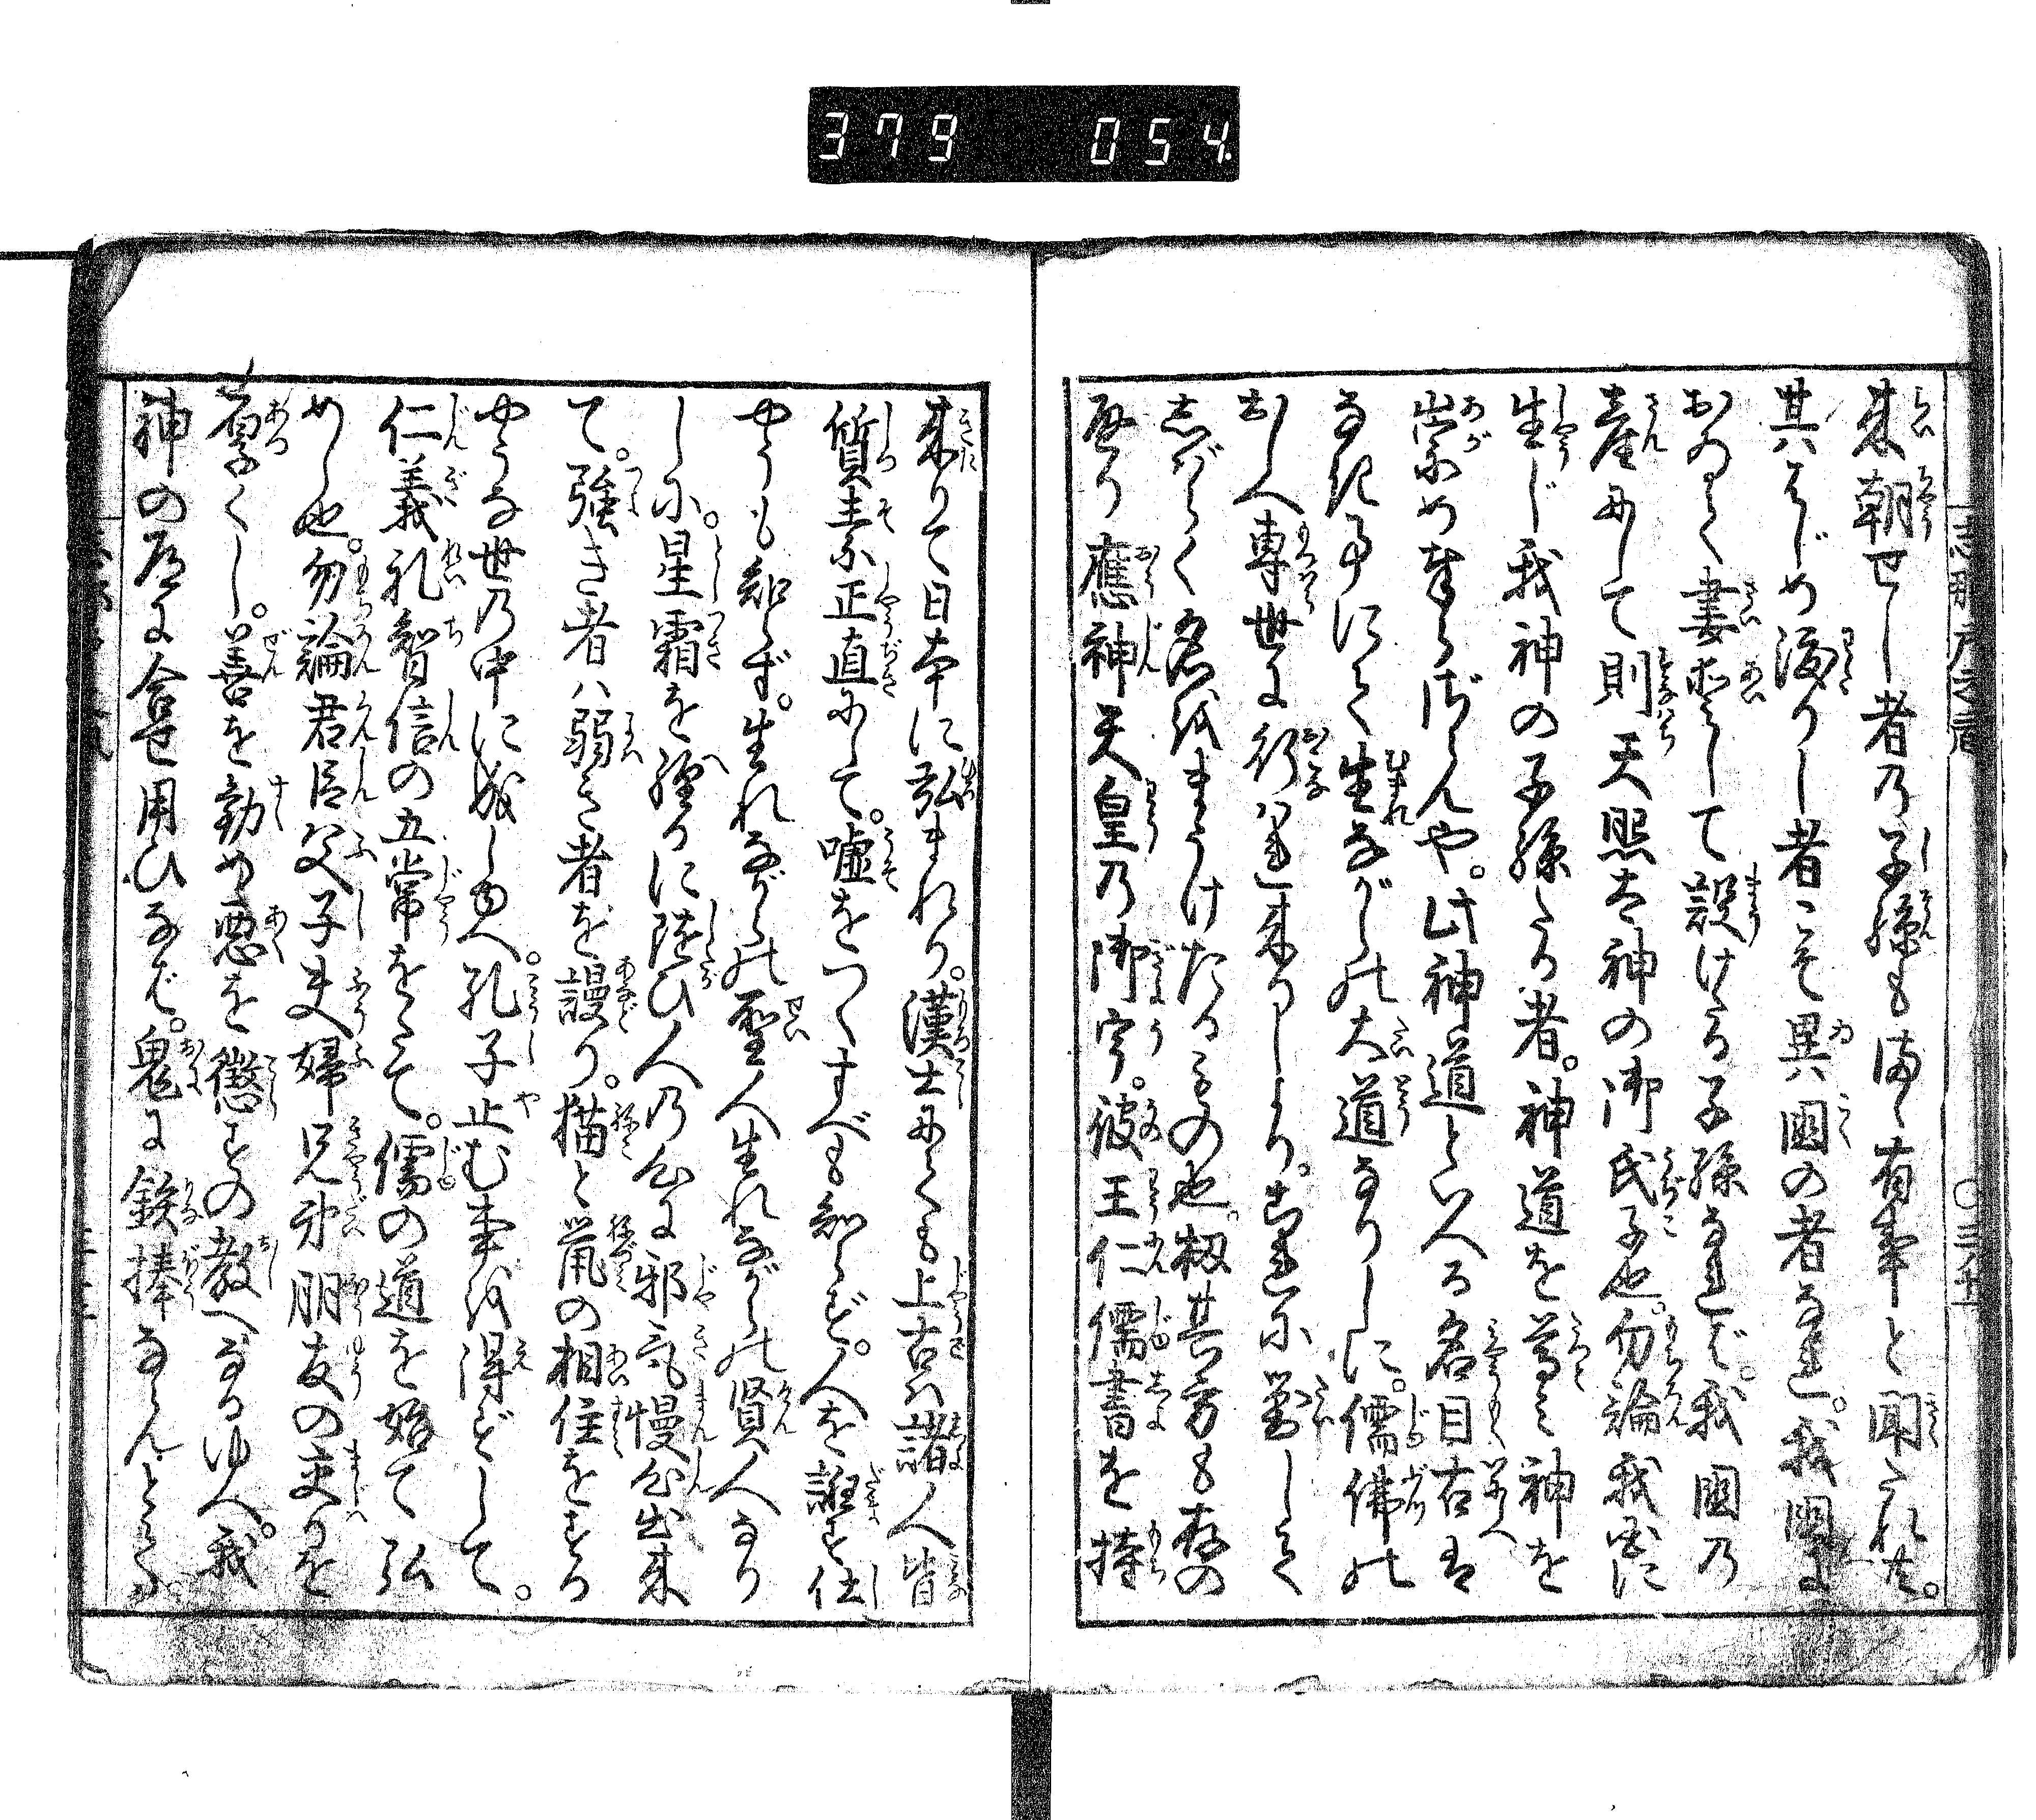 379 054.
来朝せし者乃子孫も偶〻有事と聞これ共。
其はじめ渡りし者こそ異國の者なれ。我國に
おゐて妻帯して設けたる子孫なれば。我國乃
産にして則天照太神の御氏子也。勿論我國に
生じ我神の子孫たる者。神道を尊み神を
崇め奉らざらんや。此神道といへる名目古は
なき事にて生ながらの大道なりしに。儒佛の
おしへ専世に行はれ来りしより。それに對して
志ばらく名をまうけたるもの也。扨其方も存の
通り應神天皇乃御宇。彼王仁儒書を持
来りて日本に弘まれり。漢土にても上古は諸人皆
質素正直にして。嘘をつくすべも知らず。人を誑す仕
やうも知らず。生れながらの聖人生れながらの賢人なり
しに。星霜を経るに随ひ人の心に邪気慢心出来
て。強き者は弱き者を謾り。猫と鼠の相住をする
やうな世乃中に成しゆへ。孔子止む事を得ずして。
仁義礼智信の五常をたて。儒の道を始て弘
めし也。勿論君臣父子夫婦兄弟朋友の交りを
厚くし。善を勧め悪を懲すの教へなるゆへ。我
神の道に合せ用ひなば。鬼に鉄棒ならんと